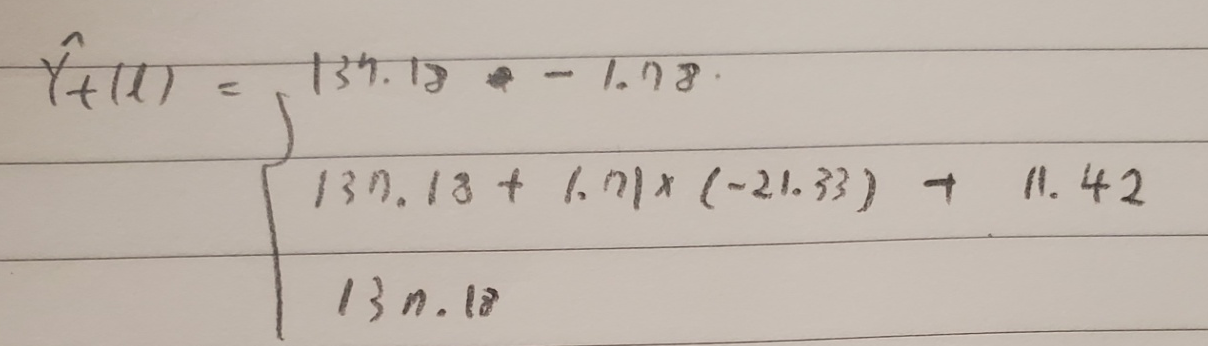 Ŷt(l) = { 137.18 - 1.78.
137.18 + 1.71 × (-21.33) + 11.42
137.18